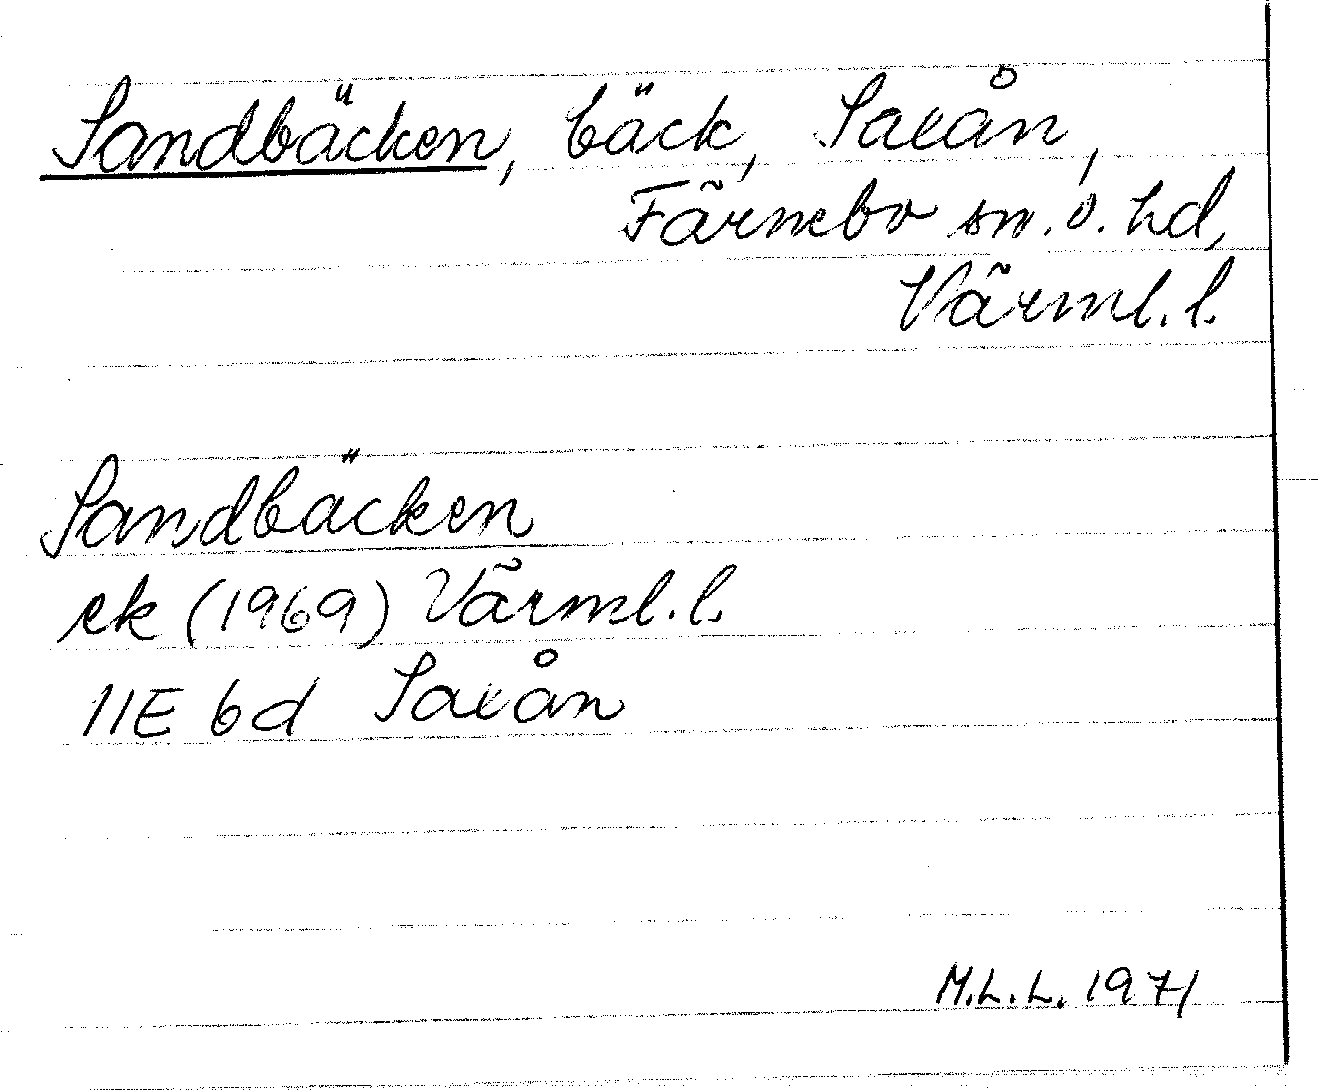 Sandbäcken, bäck, Saxån,
Färnebo sn. o. hd,
Värml. l.
Sandbäcken
ek (1969) Värml. l.
11E 6d Saxån
M.L.L. 1971